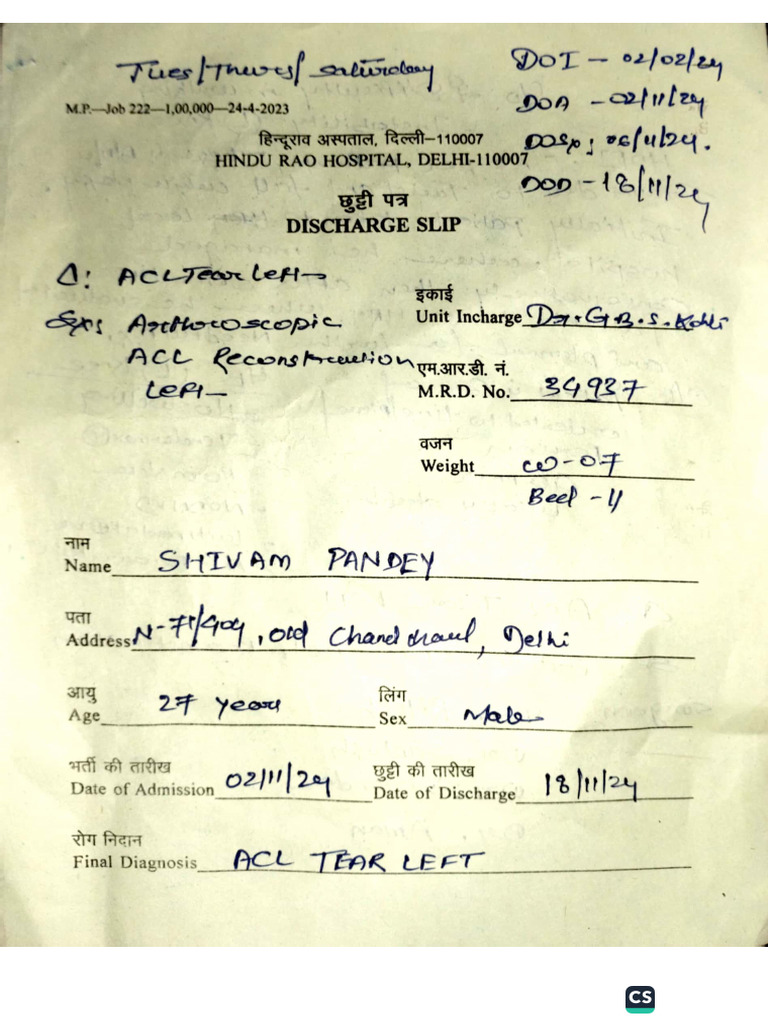 Tues/Thurs/Saturday
DOI - 02/02/24
M.P.—Job 222—1,00,000—24-4-2023
DOA - 02/11/24
हिन्दूराव अस्पताल, दिल्ली–110007
DOSx; 06/11/24.
HINDU RAO HOSPITAL, DELHI-110007
DOD - 18/11/24
छुट्टी पत्र
DISCHARGE SLIP
Δ: ACL Tear Left
इकाई
Unit Incharge Dr. G.B.S. Kohli
Sx: Arthroscopic
ACL Reconstruction
Left
एम.आर.डी. नं.
M.R.D. No. 34937
वजन
Weight W-07
Bed - 4
नाम
Name SHIVAM PANDEY
पता
Address Old Delhi
आयु
Age 27 years
लिंग
Sex Male
भर्ती की तारीख
Date of Admission 02/11/24
छुट्टी की तारीख
Date of Discharge 18/11/24
रोग निदान
Final Diagnosis ACL TEAR LEFT
CS